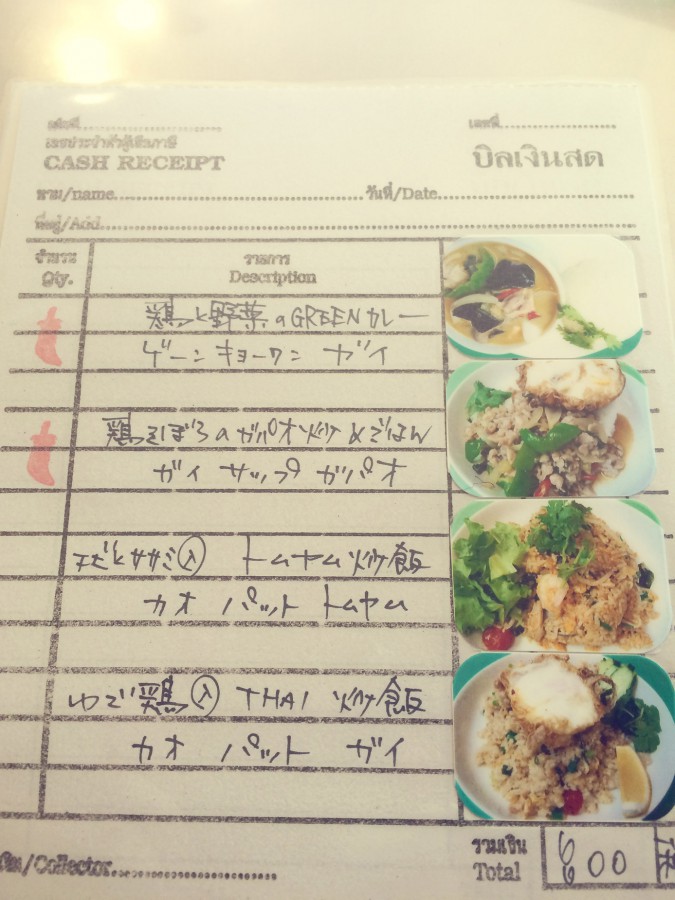 เลขที่
เลขประจำตัวผู้เสียภาษี
CASH RECEIPT บิลเงินสด
นาม/name วันที่/Date
ที่อยู่/Add.
จำนวน รายการ
Qty. Description
鶏と野菜のGREENカレー
ゲーンキョーワン ガイ
鶏そぼろのガパオ炒め&ごはん
ガイ サップ ガパオ
エビとササミ入 トムヤム炒飯
カオ パット トムヤム
ゆで鶏入 THAI 炒飯
カオ パット ガイ
รวมเงิน
Total 600
/Collector